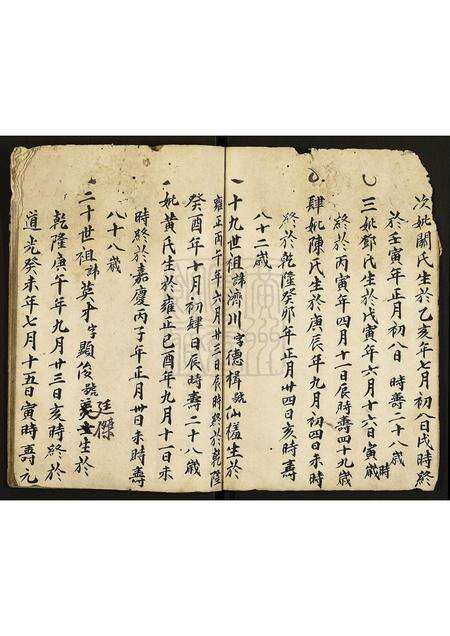 次妣關氏生於乙亥年七月初八日戌時終
於壬寅年正月初八日 時壽二十八歲
三妣鄧氏生於戊寅年六月十六日寅時
終於丙寅年四月十一日辰時壽四十九歲
肆妣陳氏生於庚辰年九月初四日未時
終於乾隆癸卯年正月廿四日亥時壽
八十二歲
一十九世祖諱濟川字德楫號仙槎生於
雍正丙午年六月廿三日辰時終於乾隆
癸酉年十月初肆日辰時壽二十八歲
妣黃氏生於雍正己酉年九月十一日未
時終於嘉慶丙子年正月卅日未時壽
八十八歲
二十世祖諱英才字顯俊號廷傑生於
乾隆庚午年九月廿三日亥時終於
道光癸未年七月十五日寅時壽元